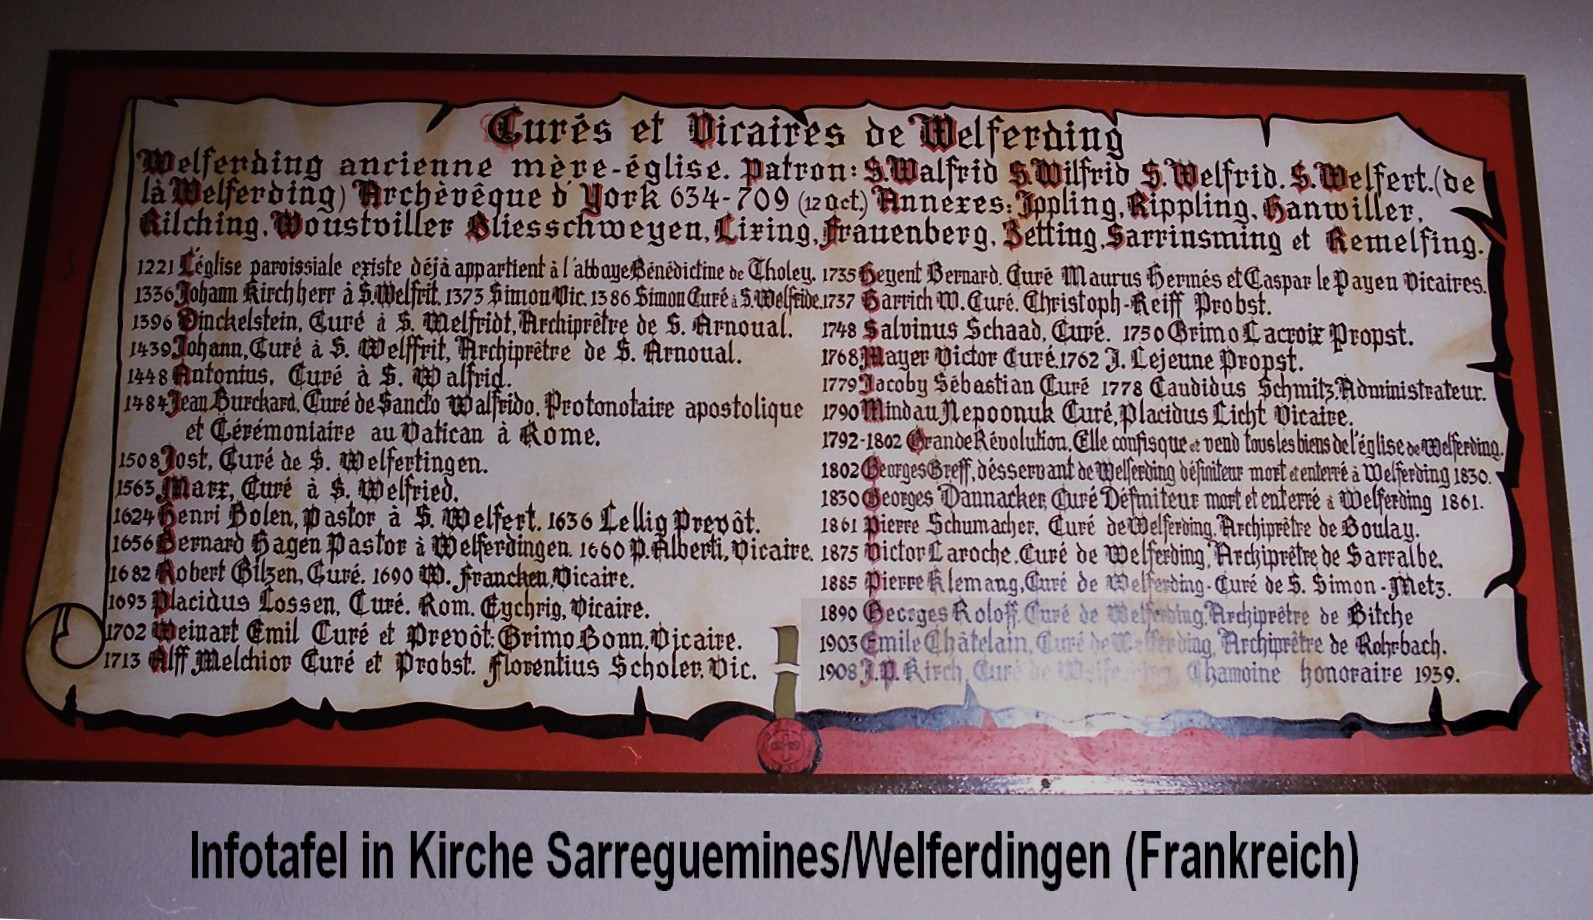 Curés et Vicaires de Welferding
Welferding ancienne mère-église. Patron: S.Walfrid S.Wilfrid S.Welfrid. S.Welfert.(de
là Welferding) Archèvêque d'York 634-709 (12 Oct.) Annexes: Ippling, Rippling, Hanwiller,
Kilching, Woustviller Bliesschweyen, Lixing, Frauenberg, Zetting, Sarrinsming et Remelfing.
1221 L'église paroissiale existe déjà appartient à l'abbaye Bénédictine de Tholey.
1336 Johann Kirchherr à S.Welfrit. 1373 Simon Vic. 1386 Simon Curé à S.Welfride.
1396 Dinckelstein, Curé à S. Welfridt, Archiprêtre de S. Arnoual.
1439 Johann, Curé à S. Welffrit, Archiprêtre de S. Arnoual.
1448 Antonius, Curé à S. Walfrid.
1484 Jean Burckard, Curé de Sancto Walfrido. Protonotaire apostolique
et Cérémoniaire au Vatican à Rome.
1508 Jost, Curé de S. Welfertingen.
1563 Marx, Curé à S. Welfried.
1624 Henri Bolen, Pastor à S. Welfert. 1636 Lellig Prevôt.
1656 Bernard Hagen Pastor à Welferdingen. 1660 P. Alberti, Vicaire.
1682 Robert Gilzen, Curé. 1690 W. Francken, Vicaire.
1693 Placidus Lossen, Curé. Rom. Eychrig, Vicaire.
1702 Weinart Emil Curé et Prevôt. Grimo Bonn, Vicaire.
1713 Alff Melchior Curé et Probst. Florentius Scholer, Vic.
1735 Heyent Bernard, Curé Maurus Hermés et Caspar le Payen Vicaires.
1737 Harrich W. Curé. Christoph-Reiff Probst.
1748 Salvinus Schaad, Curé. 1750 Grimo Lacroix Propst.
1768 Mayer Victor Curé. 1762 J. Lejeune Propst.
1779 Jacoby Sébastian Curé 1778 Candidus Schmitz, Administrateur.
1790 Mindau Nepoonuk Curé, Placidus Licht Vicaire.
1792-1802 Grande Révolution. Elle confisque et vend tous les biens de l'église de Welferding.
1802 Georges Greff, désservant de Welferding définiteur mort et enterré à Welferding 1830.
1830 Georges Dannacker, Curé Définiteur mort et enterré à Welferding 1861.
1861 Pierre Schumacher, Curé de Welferding, Archiprêtre de Boulay.
1875 Victor Laroche, Curé de Welferding, Archiprêtre de Sarralbe.
1885 Pierre Klemang, Curé de Welferding - Curé de S. Simon-Metz.
1890 Georges Roloff, Curé de Welferding, Archiprêtre de Bitche
1903 Emile Châtelain, Curé de Welferding, Archiprêtre de Rohrbach.
1908 J.P. Kirch, Curé de Welferding, Chamoine honoraire 1939.
Infotafel in Kirche Sarreguemines/Welferdingen (Frankreich)